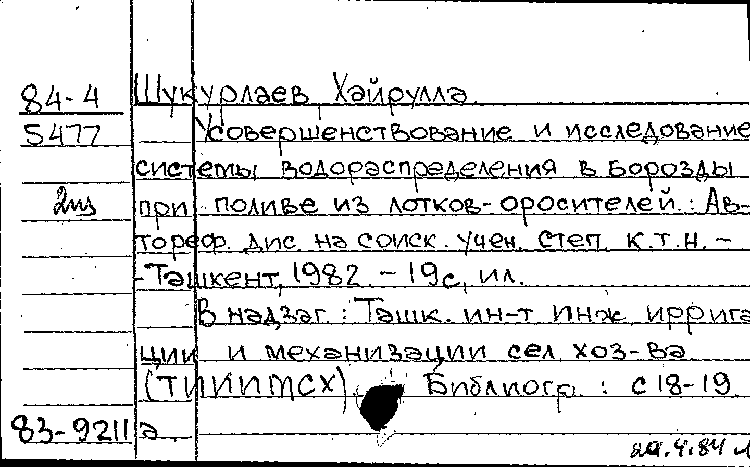 84-4 Шукурлаев Хайрулла
5477 Усовершенствование и исследование
системы водораспределения в борозды
2из при поливе из лотков-оросителей: Ав-
тореф. дис. на соиск. учен. степ. к.т.н. -
- Ташкент, 1982. - 19с, ил.
В надзаг.: Ташк. ин-т инж. иррига
ции и механизации сел. хоз-ва
(ТИИИМСХ). Библиогр.: с 18-19
83-9211 а